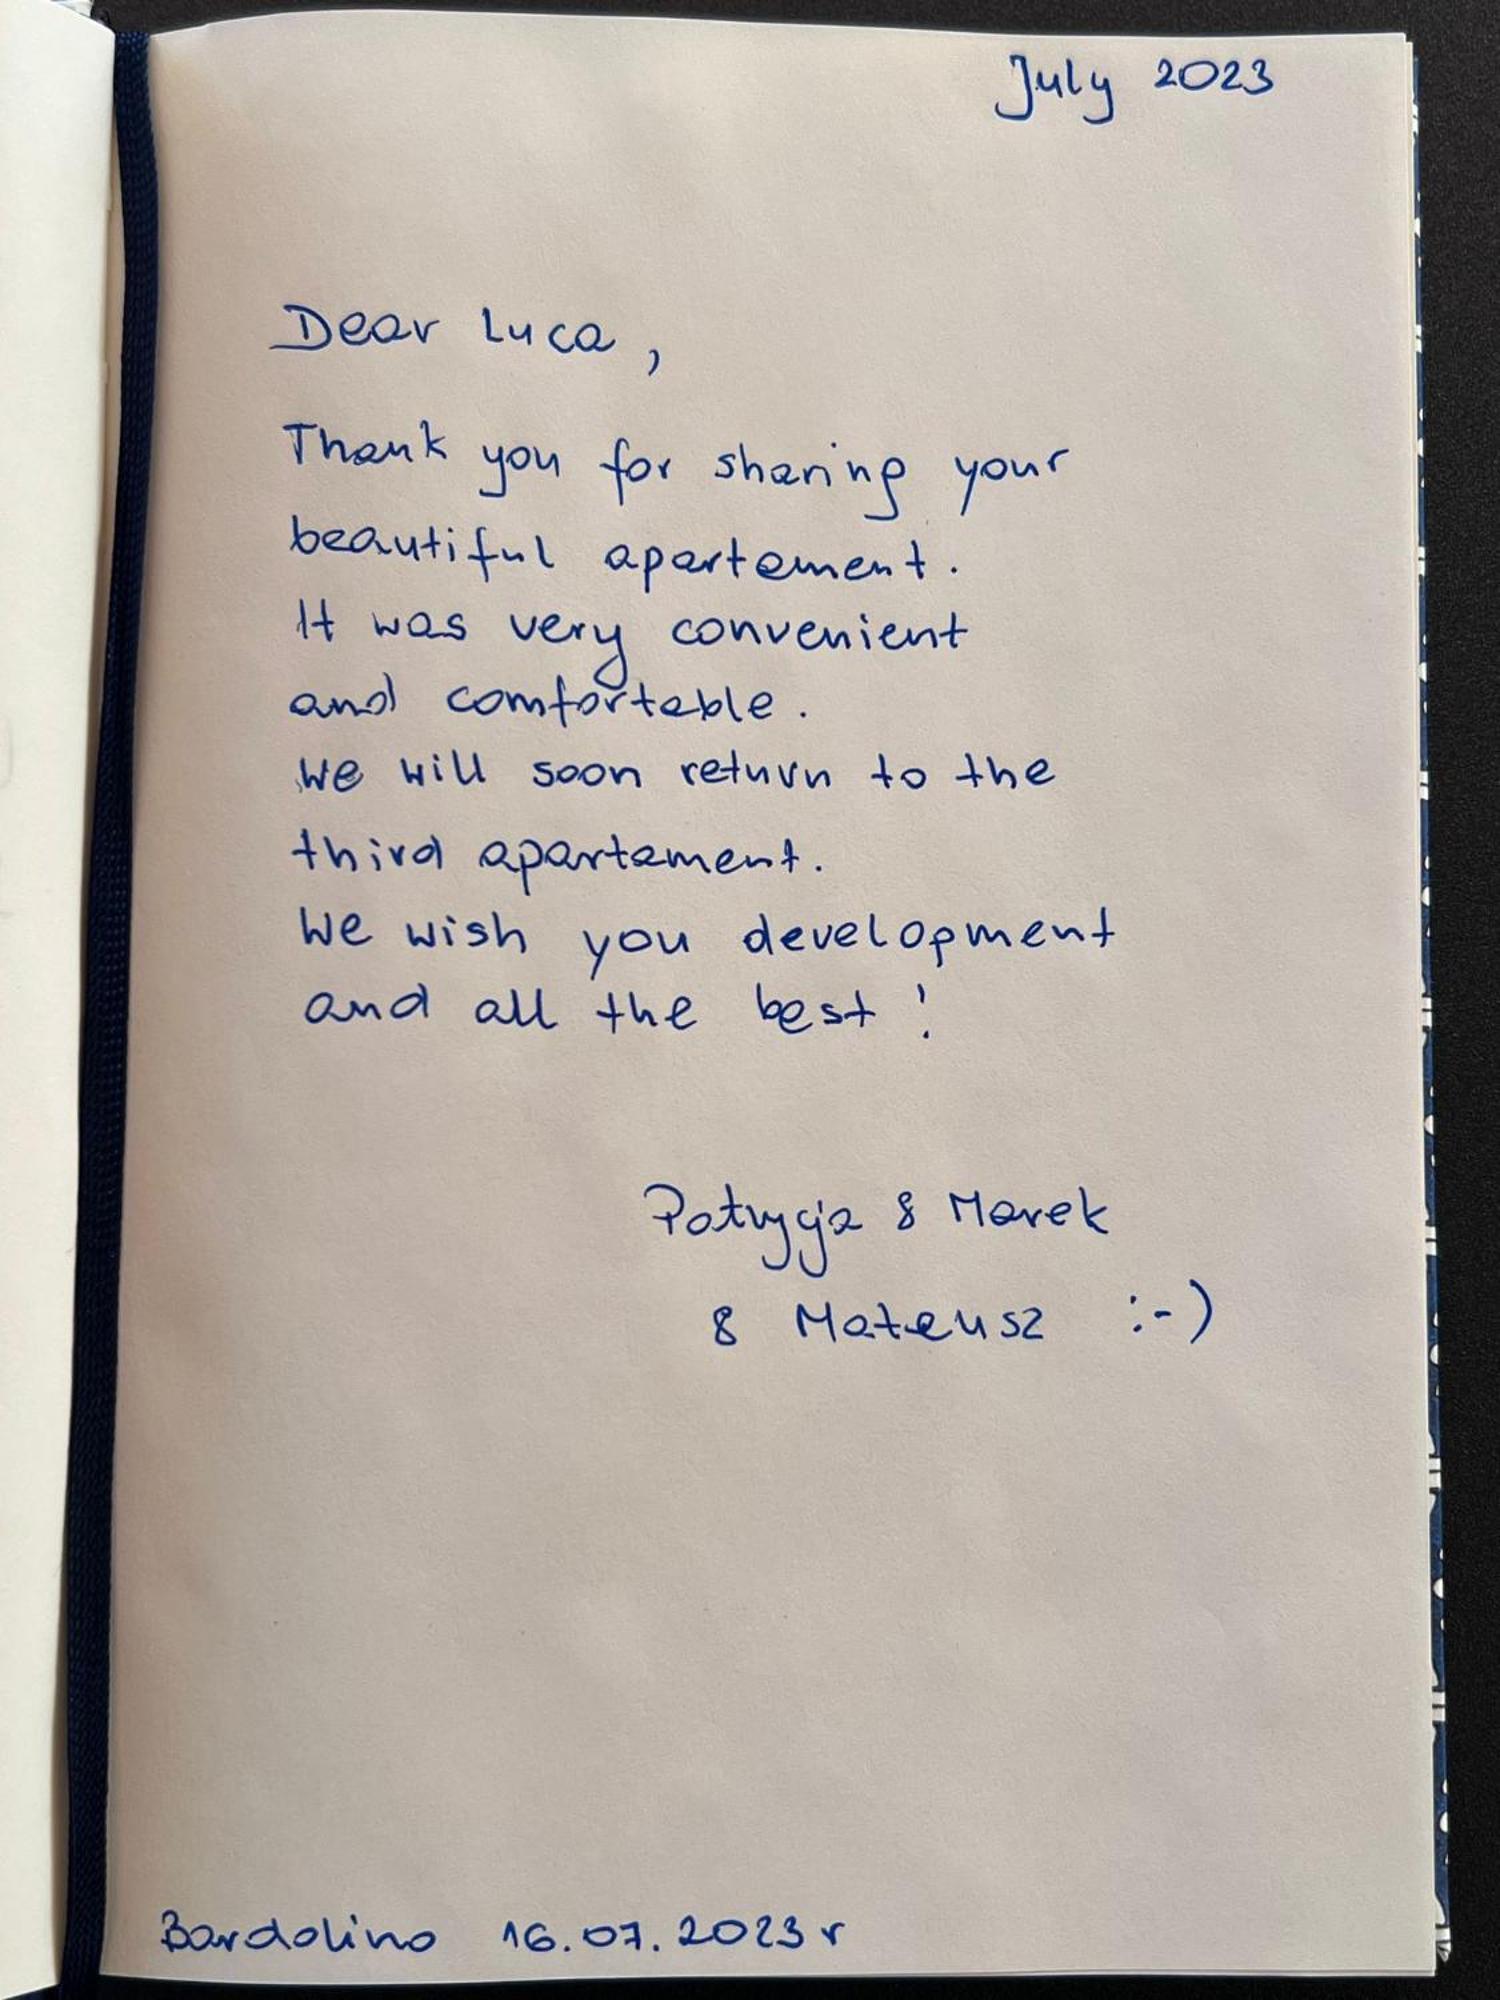 July 2023
Dear Luca,
Thank you for sharing your
beautiful apartement.
It was very convenient
and comfortable.
We will soon return to the
third apartement.
We wish you development
and all the best!
Patrycja & Marek
& Mateusz :-)
Bardolino 16.07.2023 r